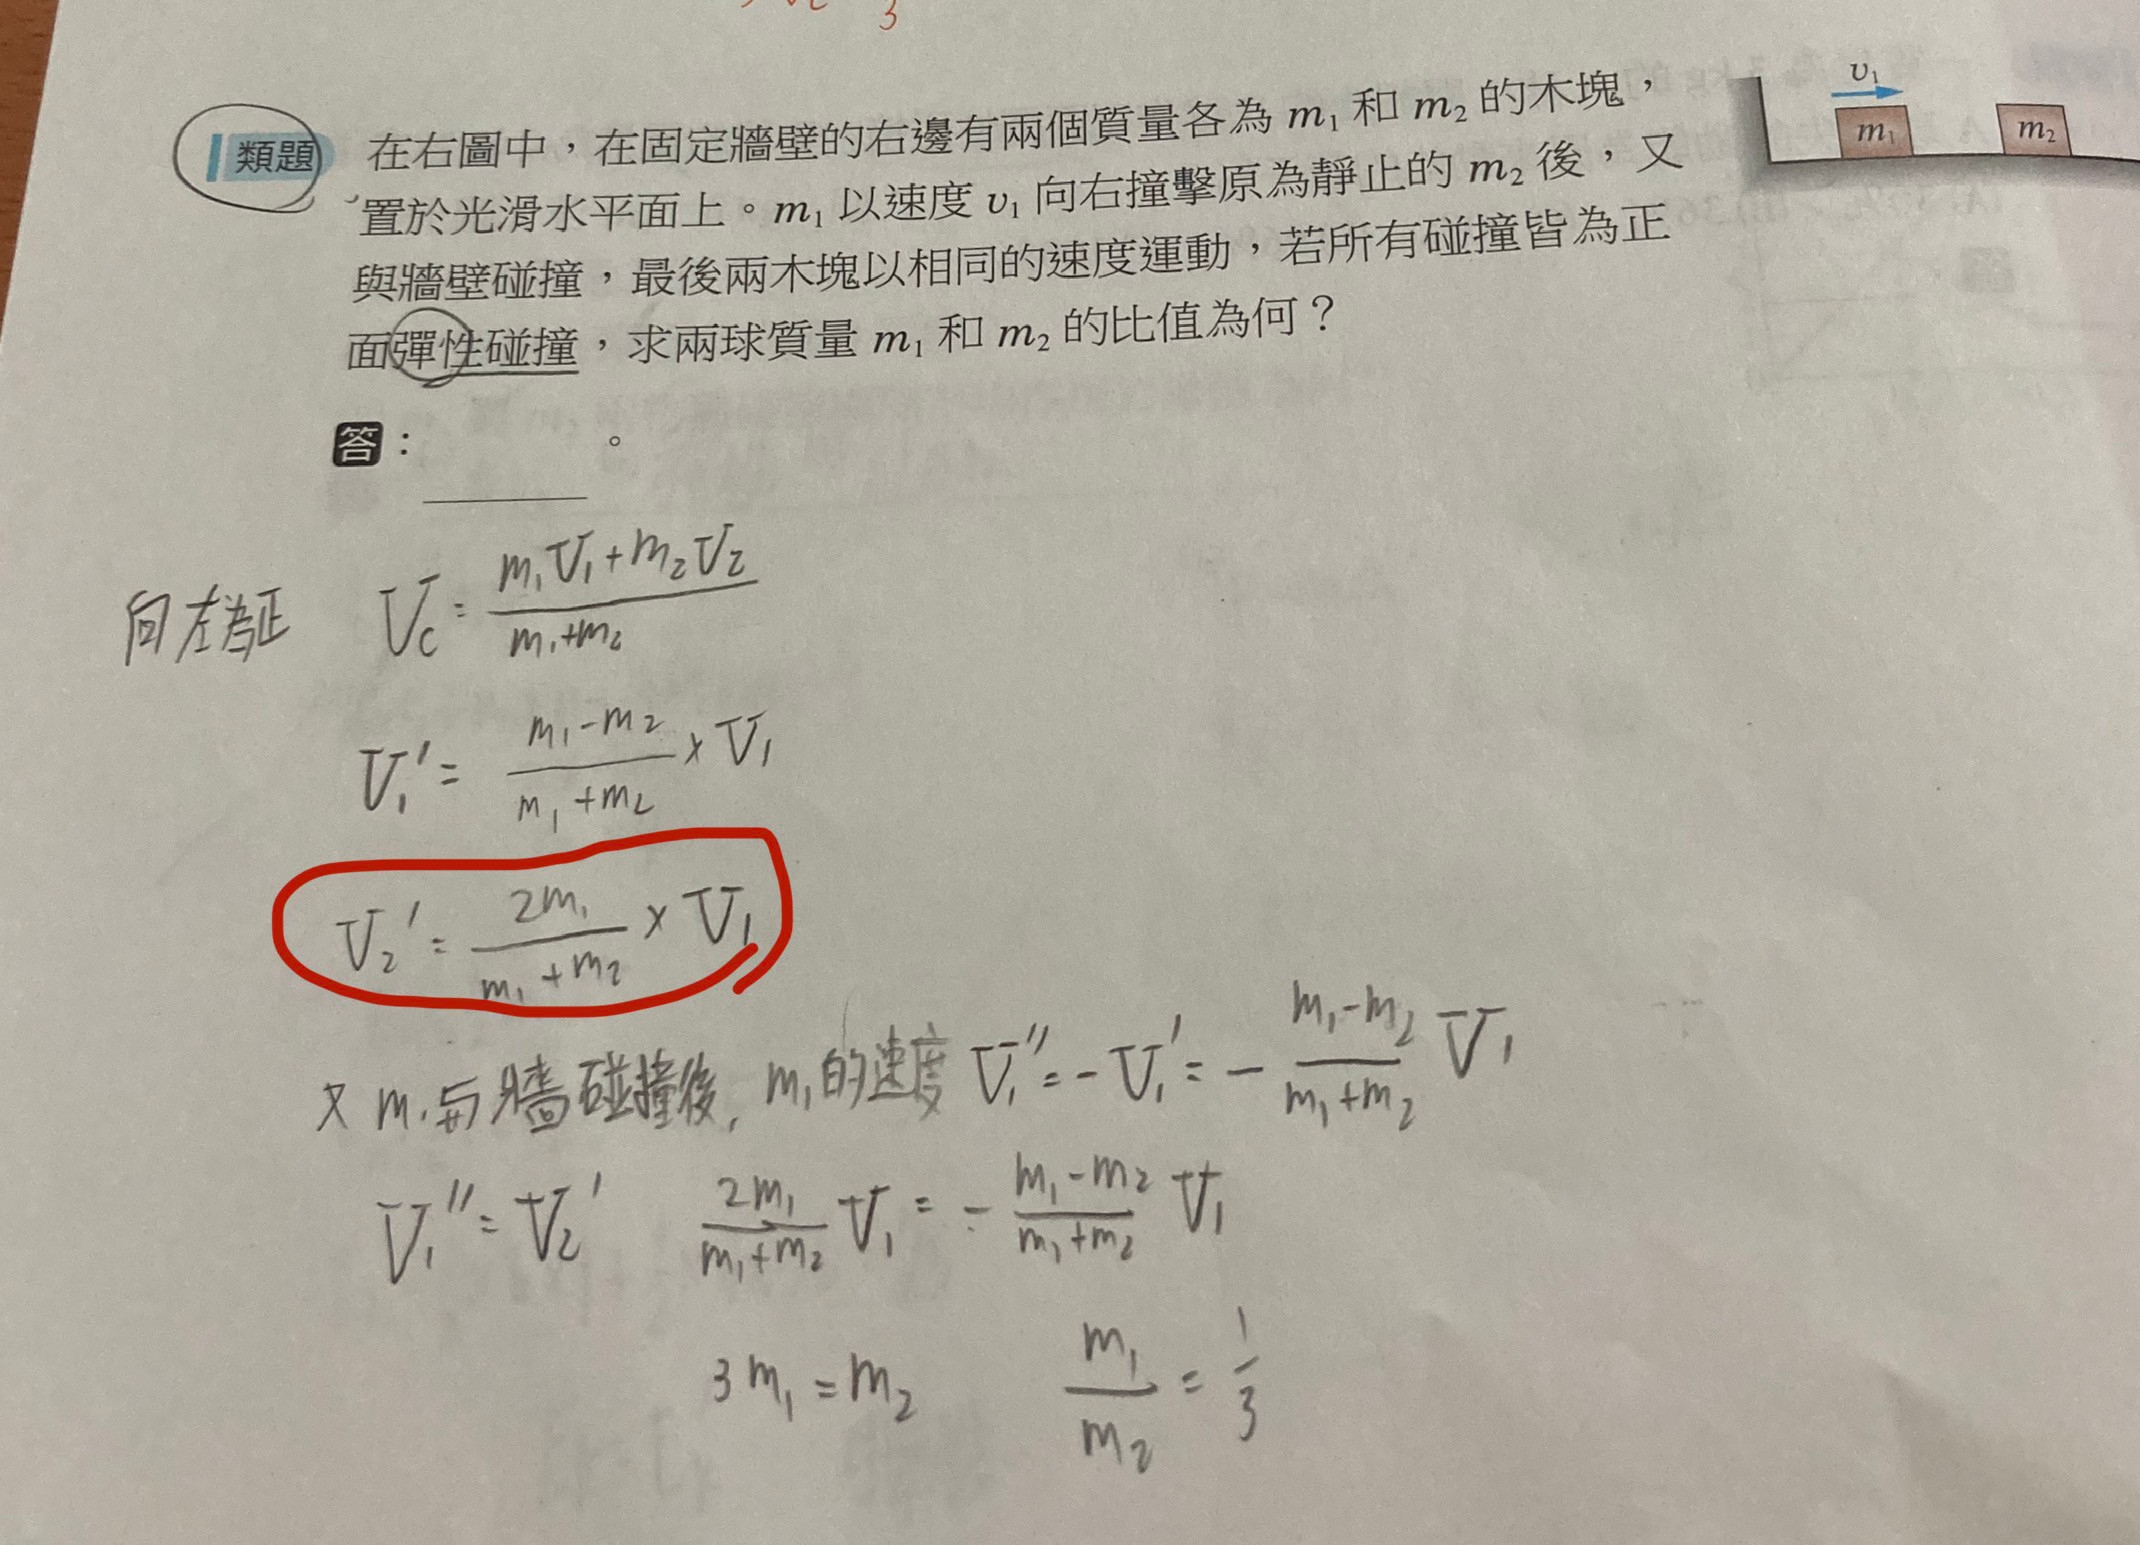 類題 在右圖中,在固定牆壁的右邊有兩個質量各為 m₁ 和 m₂ 的木塊,
置於光滑水平面上。m₁ 以速度 v₁ 向右撞擊原為靜止的 m₂ 後,又
與牆壁碰撞,最後兩木塊以相同的速度運動,若所有碰撞皆為正
面彈性碰撞,求兩球質量 m₁ 和 m₂ 的比值為何?
v₁
m₁ m₂
答:______。
向左為正 V_C = (m₁V₁+m₂V₂)/(m₁+m₂)
V₁' = (m₁-m₂)/(m₁+m₂) × V₁
V₂' = 2m₁/(m₁+m₂) × V₁
又 m₁与牆碰撞後, m₁的速度 V₁'' = -V₁' = - (m₁-m₂)/(m₁+m₂) V₁
V₁'' = V₂' 2m₁/(m₁+m₂) V₁ = - (m₁-m₂)/(m₁+m₂) V₁
3m₁ = m₂ m₁/m₂ = 1/3